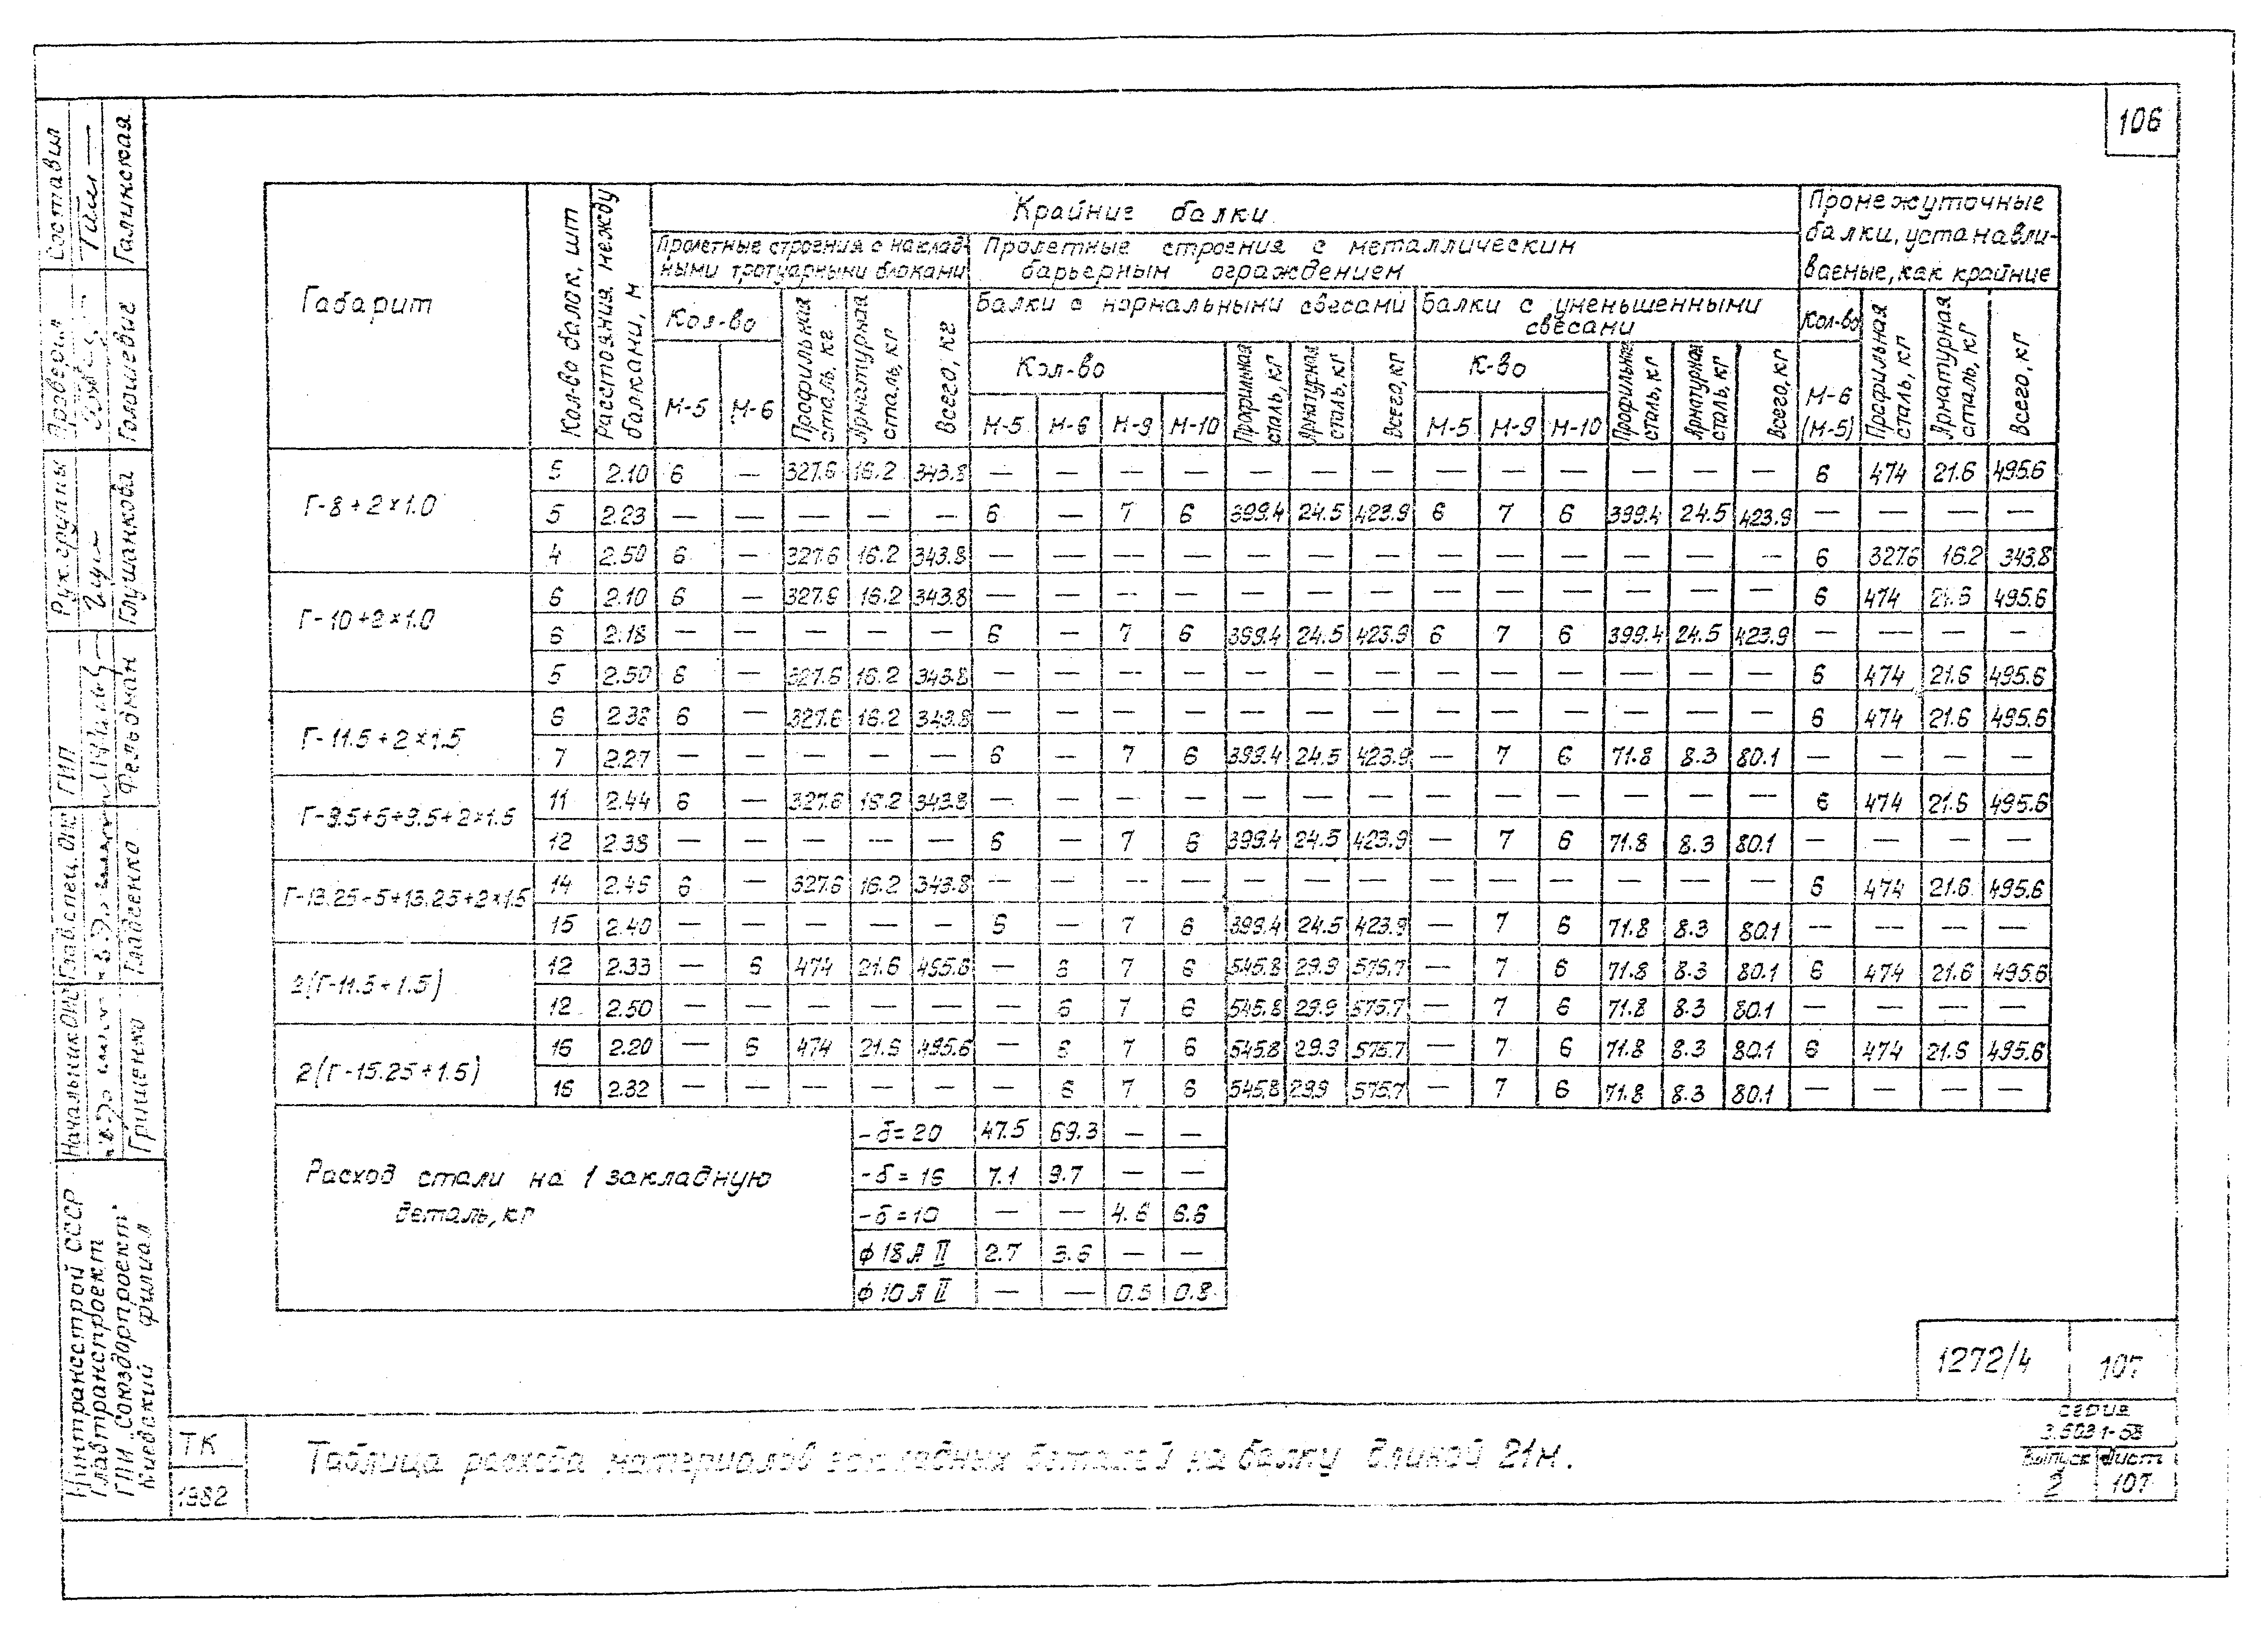 106
Габарит
Кол-во балок, шт
Расстояния между балками, м
Крайние балки
Промежуточные балки, устанавливаемые, как крайние
Пролетные строения с накладными тротуарными блоками
Пролетные строения с металлическим барьерным ограждением
Балки с нормальными свесами
Балки с уменьшенными свесами
Кол-во
М-5 М-6
Профильная сталь, кг
Арматурная сталь, кг
Всего, кг
Кол-во
М-5 М-6 М-9 М-10
Профильная сталь, кг
Арматурная сталь, кг
Всего, кг
К-во
М-5 М-9 М-10
Профильная сталь, кг
Арматурная сталь, кг
Всего, кг
Кол-во
М-6 (М-5)
Профильная сталь, кг
Арматурная сталь, кг
Всего, кг
Г-8+2×1.0
5 2.10 6 — 327.6 16.2 343.8 — — — — — — — — — — — — — 6 474 21.6 495.6
5 2.23 — — — — — 6 — 7 6 399.4 24.5 423.9 6 7 6 399.4 24.5 423.9 — — — —
4 2.50 6 — 327.6 16.2 343.8 — — — — — — — — — — — — — 6 327.6 16.2 343.8
Г-10+2×1.0
6 2.10 6 — 327.6 16.2 343.8 — — — — — — — — — — — — — 6 474 21.6 495.6
6 2.18 — — — — — 6 — 7 6 399.4 24.5 423.9 6 7 6 399.4 24.5 423.9 — — — —
5 2.50 6 — 327.6 16.2 343.8 — — — — — — — — — — — — — 6 474 21.6 495.6
Г-11.5+2×1.5
6 2.38 6 — 327.6 16.2 343.8 — — — — — — — — — — — — — 6 474 21.6 495.6
7 2.27 — — — — — 6 — 7 6 399.4 24.5 423.9 — 7 6 71.8 8.3 80.1 — — — —
Г-9.5+5+9.5+2×1.5
11 2.44 6 — 327.6 16.2 343.8 — — — — — — — — — — — — — 6 474 21.6 495.6
12 2.38 — — — — — 6 — 7 6 399.4 24.5 423.9 — 7 6 71.8 8.3 80.1 — — — —
Г-13.25+5+13.25+2×1.5
14 2.46 6 — 327.6 16.2 343.8 — — — — — — — — — — — — — 6 474 21.6 495.6
15 2.40 — — — — — 6 — 7 6 399.4 24.5 423.9 — 7 6 71.8 8.3 80.1 — — — —
2(Г-11.5+1.5)
12 2.33 — 6 474 21.6 495.6 — 6 7 6 545.8 29.9 575.7 — 7 6 71.8 8.3 80.1 6 474 21.6 495.6
12 2.50 — — — — — — 6 7 6 545.8 29.9 575.7 — 7 6 71.8 8.3 80.1 — — — —
2(Г-15.25+1.5)
16 2.20 — 6 474 21.6 495.6 — 6 7 6 545.8 29.9 575.7 — 7 6 71.8 8.3 80.1 6 474 21.6 495.6
16 2.32 — — — — — — 6 7 6 545.8 29.9 575.7 — 7 6 71.8 8.3 80.1 — — — —
Расход стали на 1 закладную
деталь, кг
-δ=20 47.5 69.3 — —
-δ=16 7.1 9.7 — —
-δ=10 — — 4.6 6.6
φ18 А II 2.7 3.6 — —
φ10 А II — — 0.5 0.8
1272/4 107
ТК
1982
Таблица расхода материалов закладных деталей на балку длиной 21м.
серия
3.503.1-58
Выпуск Лист
2 107
Составил Галинская
Проверил Голашевиг
Рук. группы Глушакова
ГИП Фельдман
Глав. спец. ОИС Гладсенко
Начальник ОИС Грищенко
Минтрансстрой СССР
Главтранспроект
ГПИ „Союздорпроект"
Киевский филиал